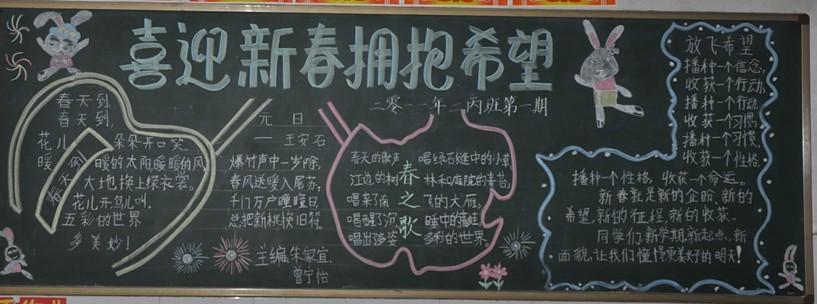 喜迎新春拥抱希望
二零一一年二丙班第一期
春天到
春天到,
花儿朵朵开口笑。
暖暖的太阳暖暖的风
大地换上绿衣裳。
花儿开鸟儿叫,
五彩的世界
多美妙!
元日
—王安石
爆竹声中一岁除,
春风送暖入屠苏,
千门万户曈曈日,
总把新桃换旧符。
主编:朱家宜
曾宁怡
春之歌
春天的歌声
江边的树
唱来了南飞的大雁,
唱醒了沉睡中的青蛙
唱出多姿多彩的世界。
放飞希望
播种一个信念,
收获一个行动,
播种一个行动,
收获一个习惯,
播种一个习惯,
收获一个性格,
播种一个性格,收获一个命运。
新春就是新的企盼,新的
希望,新的征程,新的收获。
同学们,新学期,新起点,新
面貌,让我们憧憬更美好的明天!